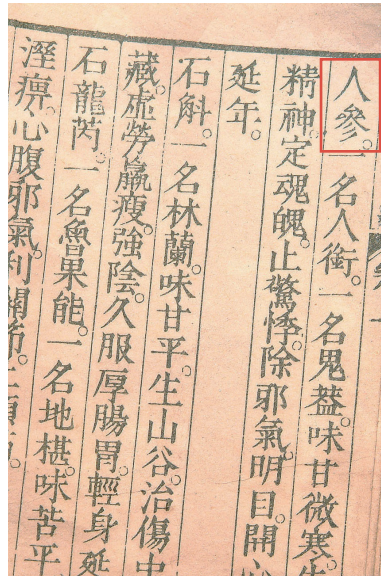 人參。一名人銜。一名鬼蓋。味甘微寒。生
精神。定魂魄。止驚悸。除邪氣。明目。開心
延年。
石斛。一名林蘭。味甘平。生山谷。治傷中
藏。虛勞羸瘦。強陰。久服厚腸胃。輕身延
石龍芮。一名魯果能。一名地椹。味苦平
溼痹。心腹邪氣。利關節。止煩